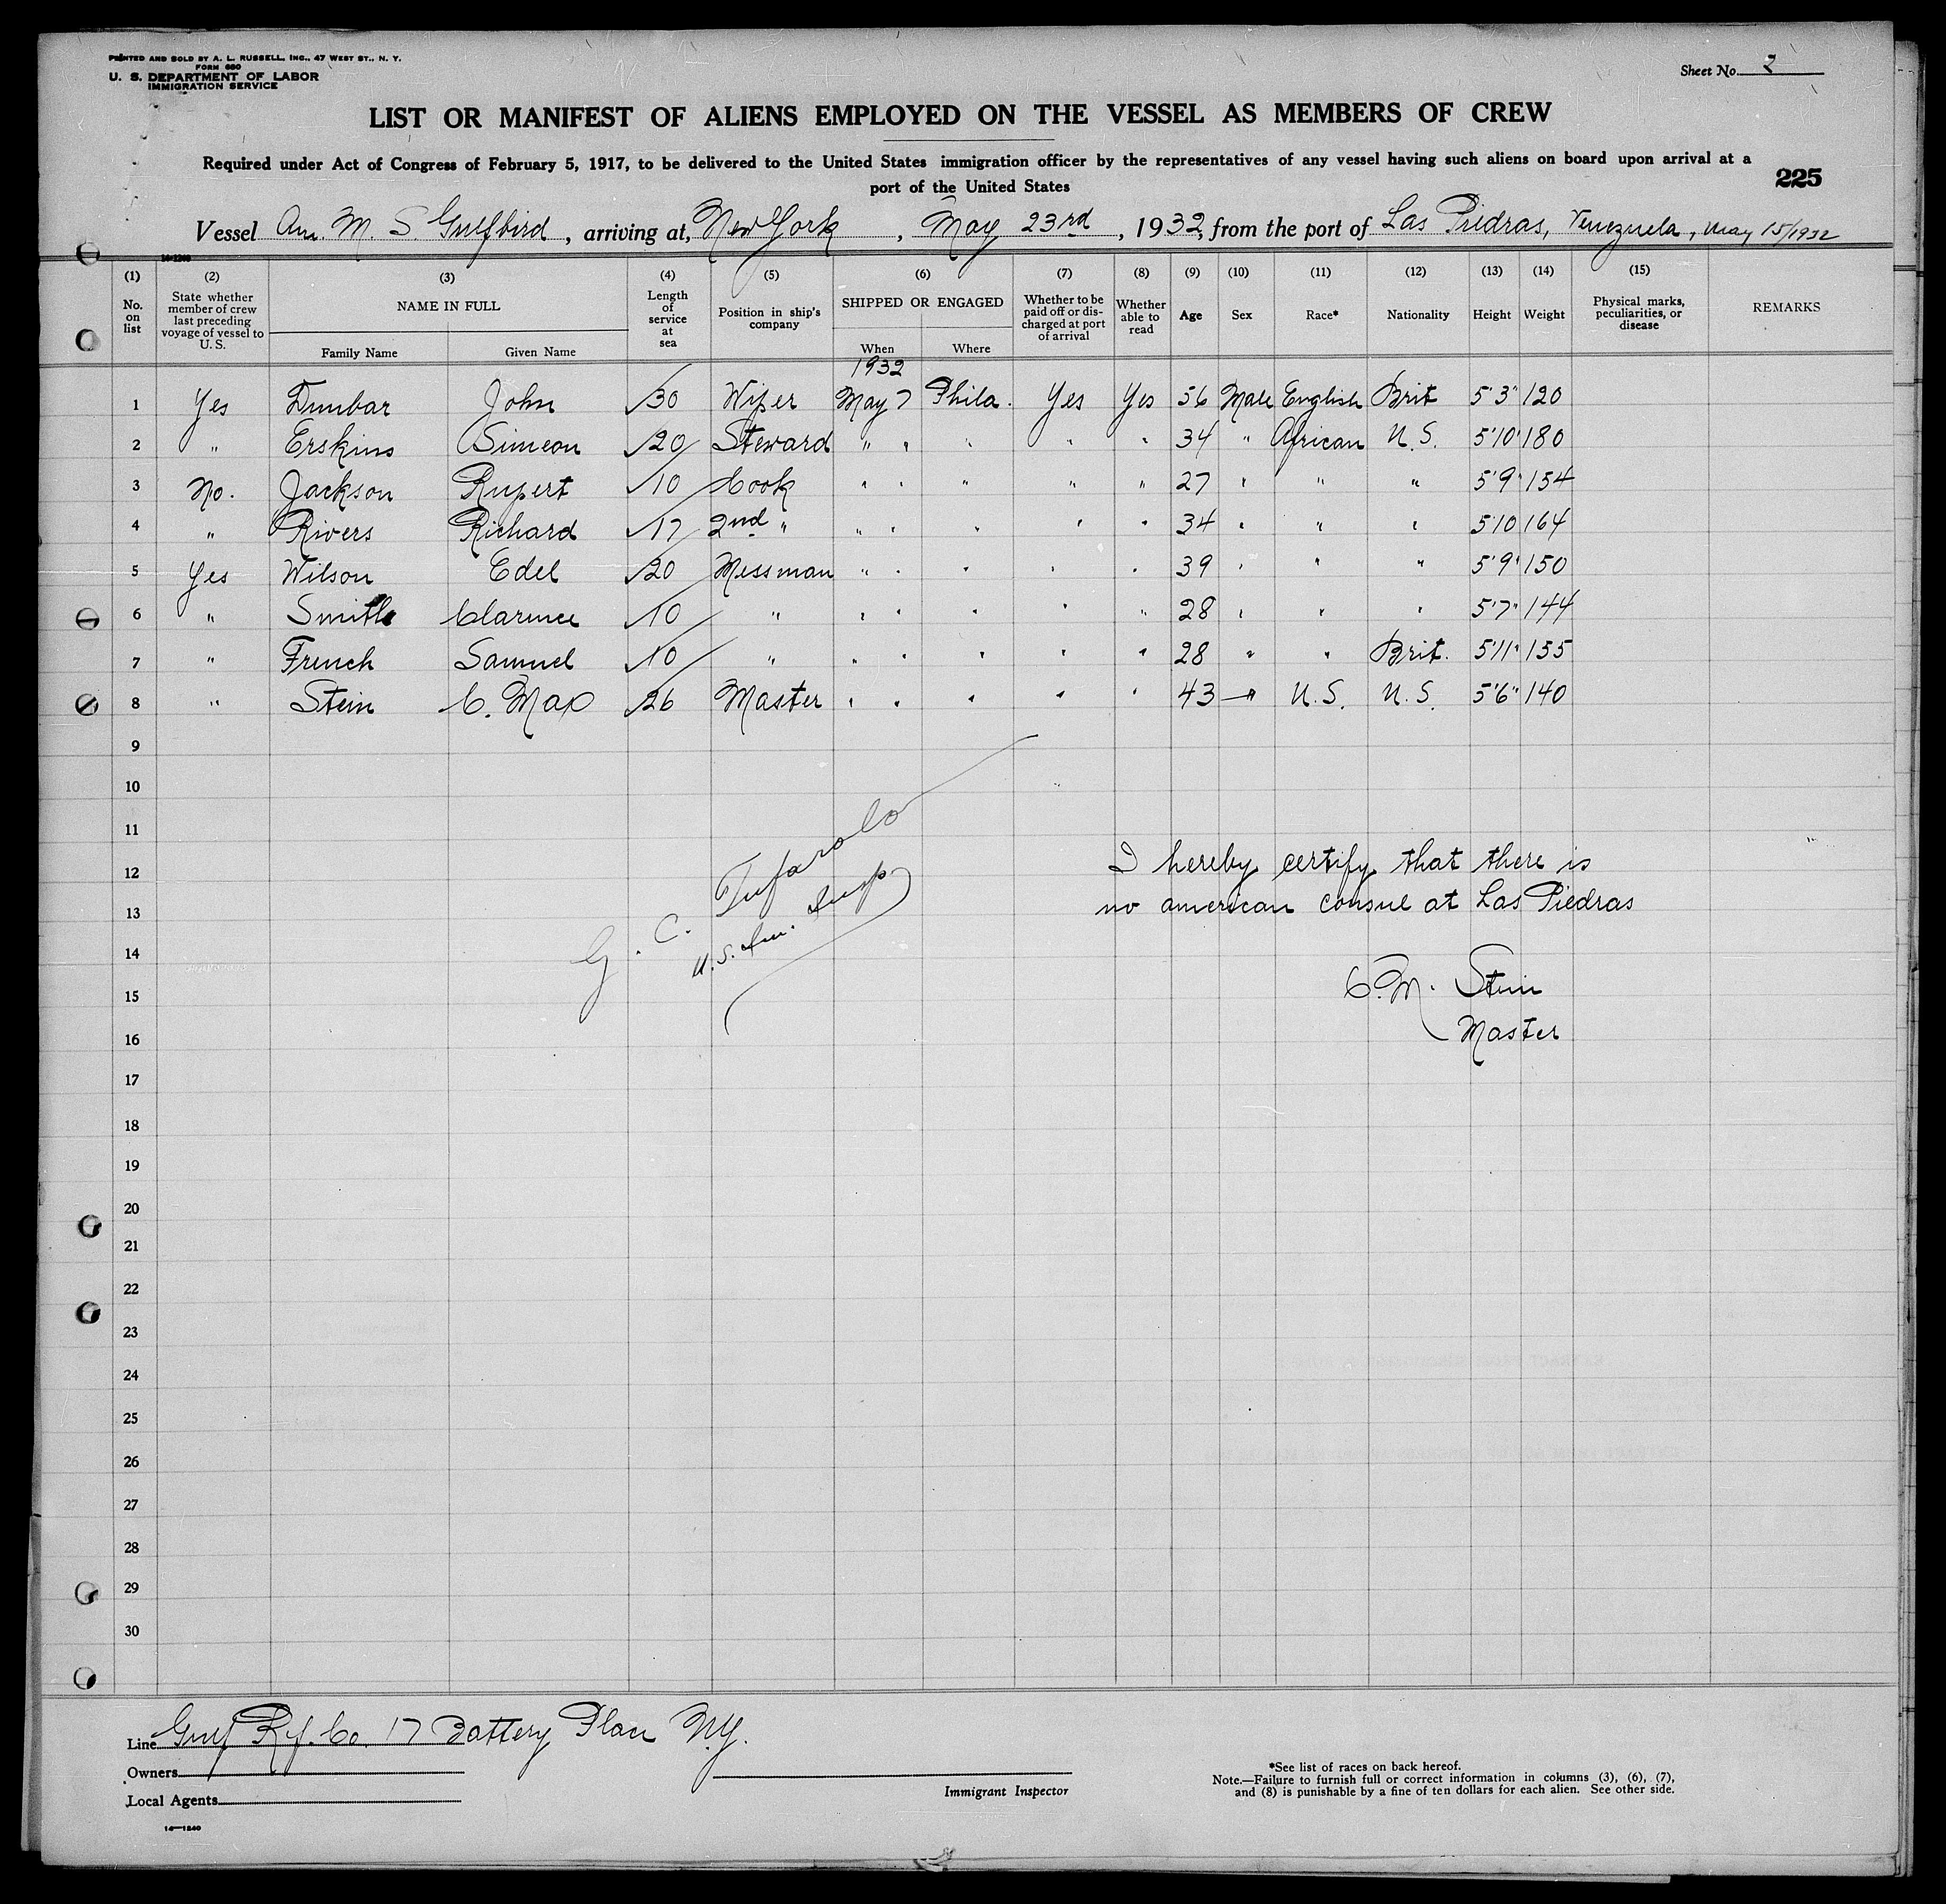 PRINTED AND SOLD BY A. L. RUSSELL, INC., 47 WEST ST., N. Y.
FORM 680
U. S. DEPARTMENT OF LABOR
IMMIGRATION SERVICE
Sheet No. 2
LIST OR MANIFEST OF ALIENS EMPLOYED ON THE VESSEL AS MEMBERS OF CREW
Required under Act of Congress of February 5, 1917, to be delivered to the United States immigration officer by the representatives of any vessel having such aliens on board upon arrival at a
port of the United States
225
Vessel Am. M. S. Gulfbird, arriving at, New York, May 23rd, 1932, from the port of Las Piedras, Venezuela, May 15/1932
14-1240
(1) (2) (3) (4) (5) (6) (7) (8) (9) (10) (11) (12) (13) (14) (15)
No. on list State whether member of crew last preceding voyage of vessel to U. S. NAME IN FULL Family Name Given Name Length of service at sea Position in ship's company SHIPPED OR ENGAGED When Where Whether to be paid off or discharged at port of arrival Whether able to read Age Sex Race* Nationality Height Weight Physical marks, peculiarities, or disease REMARKS
1932
1 Yes Dunbar John 30 Wiper May 7 Phila. Yes Yes 56 Male English Brit 5'3" 120
2 " Erskins Simeon 20 Steward " " " " " 34 " African U.S. 5'10" 180
3 No. Jackson Rupert 10 Cook " " " " " 27 " " " 5'9" 154
4 " Rivers Richard 17 2nd " " " " " " 34 " " " 5'10 164
5 Yes Wilson Edel 20 Messman " " " " " 39 " " " 5'9" 150
6 " Smith Clarence 10 " " " " " " 28 " " " 5'7" 144
7 " French Samuel 10 " " " " " " 28 " " Brit. 5'11" 155
8 " Stein C. Max 26 Master " " " " " 43 " U.S. U.S. 5'6" 140
9
10
11
12
13
14
15
16
17
18
19
20
21
22
23
24
25
26
27
28
29
30
G. C. Tufarolo
U.S. Im. Insp
I hereby certify that there is
no american consul at Las Piedras
C. M. Stein
Master
Line Gulf Rf. Co. 17 Battery Place N.Y.
Owners
Local Agents
14—1240
Immigrant Inspector
*See list of races on back hereof.
Note.—Failure to furnish full or correct information in columns (3), (6), (7),
and (8) is punishable by a fine of ten dollars for each alien. See other side.